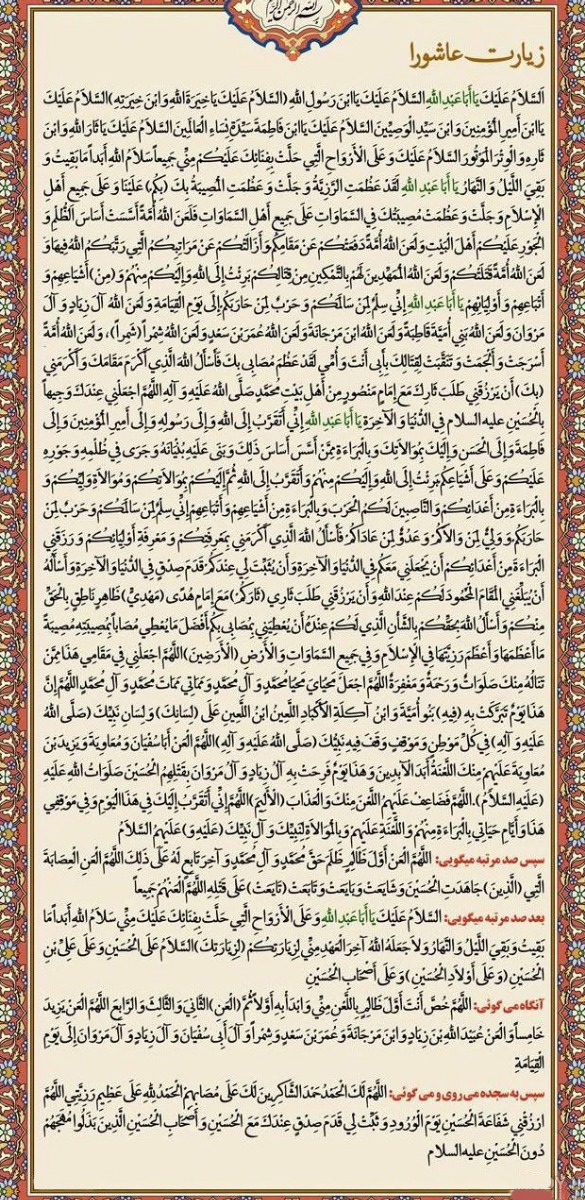 بسم الله الرحمن الرحیم
زیارت عاشورا
السلام عليك يا أبا عبد الله السلام عليك يا ابن رسول الله (السلام عليك يا خيرة الله و ابن خيرته) السلام عليك
يا ابن أمير المؤمنين و ابن سيد الوصيين السلام عليك يا ابن فاطمة سيدة نساء العالمين السلام عليك يا ثار الله و ابن
ثاره و الوتر الموتور السلام عليك و على الأرواح التي حلت بفنائك عليكم مني جميعا سلام الله أبدا ما بقيت و
بقي الليل و النهار يا أبا عبد الله لقد عظمت الرزية و جلت و عظمت المصيبة بك (بكم) علينا و على جميع أهل
الإسلام و جلت و عظمت مصيبتك في السماوات على جميع أهل السماوات فلعن الله أمة أسست أساس الظلم و
الجور عليكم أهل البيت و لعن الله أمة دفعتكم عن مقامكم و أزالتكم عن مراتبكم التي رتبكم الله فيها و
لعن الله أمة قتلتكم و لعن الله الممهدين لهم بالتمكين من قتالكم برئت إلى الله و إليكم منهم و (من) أشياعهم و
أتباعهم و أوليائهم يا أبا عبد الله إني سلم لمن سالمكم و حرب لمن حاربكم إلى يوم القيامة و لعن الله آل زياد و آل
مروان و لعن الله بني أمية قاطبة و لعن الله ابن مرجانة و لعن الله عمر بن سعد و لعن الله شمرا (شمرا)، و لعن الله أمة
أسرجت و ألجمت و تنقبت لقتالك بأبي أنت و أمي لقد عظم مصابي بك فأسأل الله الذي أكرم مقامك و أكرمني
(بك) أن يرزقني طلب ثارك مع إمام منصور من أهل بيت محمد صلى الله عليه و آله اللهم اجعلني عندك وجيها
بالحسين عليه السلام في الدنيا و الآخرة يا أبا عبد الله إني أتقرب إلى الله و إلى رسوله و إلى أمير المؤمنين و إلى
فاطمة و إلى الحسن و إليك بموالاتك و بالبراءة ممن أسس أساس ذلك و بنى عليه بنيانه و جرى في ظلمه و جوره
عليكم و على أشياعكم برئت إلى الله و إليكم منهم و أتقرب إلى الله ثم إليكم بموالاتكم و موالاة وليكم و
بالبراءة من أعدائكم و الناصبين لكم الحرب و بالبراءة من أشياعهم و أتباعهم إني سلم لمن سالمكم و حرب لمن
حاربكم و ولي لمن والاكم و عدو لمن عاداكم فأسأل الله الذي أكرمني بمعرفتكم و معرفة أوليائكم و رزقني
البراءة من أعدائكم أن يجعلني معكم في الدنيا و الآخرة و أن يثبت لي عندكم قدم صدق في الدنيا و الآخرة و أسأله
أن يبلغني المقام المحمود لكم عند الله و أن يرزقني طلب ثاري (ثاركم) مع إمام هدى (مهدي) ظاهر ناطق بالحق
منكم و أسأل الله بحقكم بالشأن الذي لكم عنده أن يعطيني بمصابي بكم أفضل ما يعطي مصابا بمصيبته مصيبة
ما أعظمها و أعظم رزيتها في الإسلام و في جميع السماوات و الأرض (الأرضين) اللهم اجعلني في مقامي هذا ممن
تناله منك صلوات و رحمة و مغفرة اللهم اجعل محياي محيا محمد و آل محمد و مماتي ممات محمد و آل محمد اللهم إن
هذا يوم تبركت به (فيه) بنو أمية و ابن آكلة الأكباد اللعين ابن اللعين على (لسانك) و لسان نبيك (صلى الله
عليه و آله) في كل موطن و موقف وقف فيه نبيك (صلى الله عليه و آله) اللهم العن أبا سفيان و معاوية و يزيد بن
معاوية عليهم منك اللعنة أبد الآبدين و هذا يوم فرحت به آل زياد و آل مروان بقتلهم الحسين صلوات الله عليه
(عليه السلام). اللهم فضاعف عليهم اللعن منك و العذاب (الأليم) اللهم إني أتقرب إليك في هذا اليوم و في موقفي
هذا و أيام حياتي بالبراءة منهم و اللعنة عليهم و بالموالاة لنبيك و آل نبيك (عليه و) عليهم السلام
سپس صد مرتبه میگویی: اللهم العن أول ظالم ظلم حق محمد و آل محمد و آخر تابع له على ذلك اللهم العن العصابة
التي (الذين) جاهدت الحسين و شايعت و بايعت و تابعت (تايعت) على قتله اللهم العنهم جميعا
بعد صد مرتبه میگویی: السلام عليك يا أبا عبد الله و على الأرواح التي حلت بفنائك عليك مني سلام الله أبدا ما
بقيت و بقي الليل و النهار و لا جعله الله آخر العهد مني لزيارتكم (لزيارتك) السلام على الحسين و على علي بن
الحسين (و على أولاد الحسين) و على أصحاب الحسين
آنگاه می گوئی: اللهم خص أنت أول ظالم باللعن مني و ابدأ به أولا ثم (العن) الثاني و الثالث و الرابع اللهم العن يزيد
خامسا و العن عبيد الله بن زياد و ابن مرجانة و عمر بن سعد و شمرا و آل أبي سفيان و آل زياد و آل مروان إلى يوم
القيامة
سپس به سجده می روی و می گوئی: اللهم لك الحمد حمد الشاكرين لك على مصابهم الحمد لله على عظيم رزيتي اللهم
ارزقني شفاعة الحسين يوم الورود و ثبت لي قدم صدق عندك مع الحسين و أصحاب الحسين الذين بذلوا مهجهم
دون الحسين عليه السلام